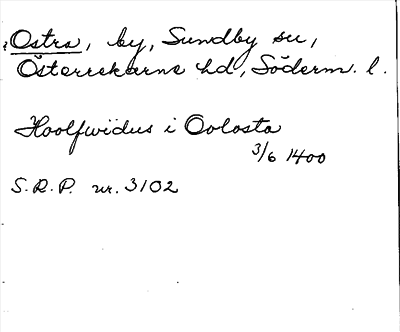 Ostra, by, Sundby sn,
Österrekarne hd, Söderm. l.
Hoolfwidus i Oolosta
3/6 1400
S.R.P. nr. 3102